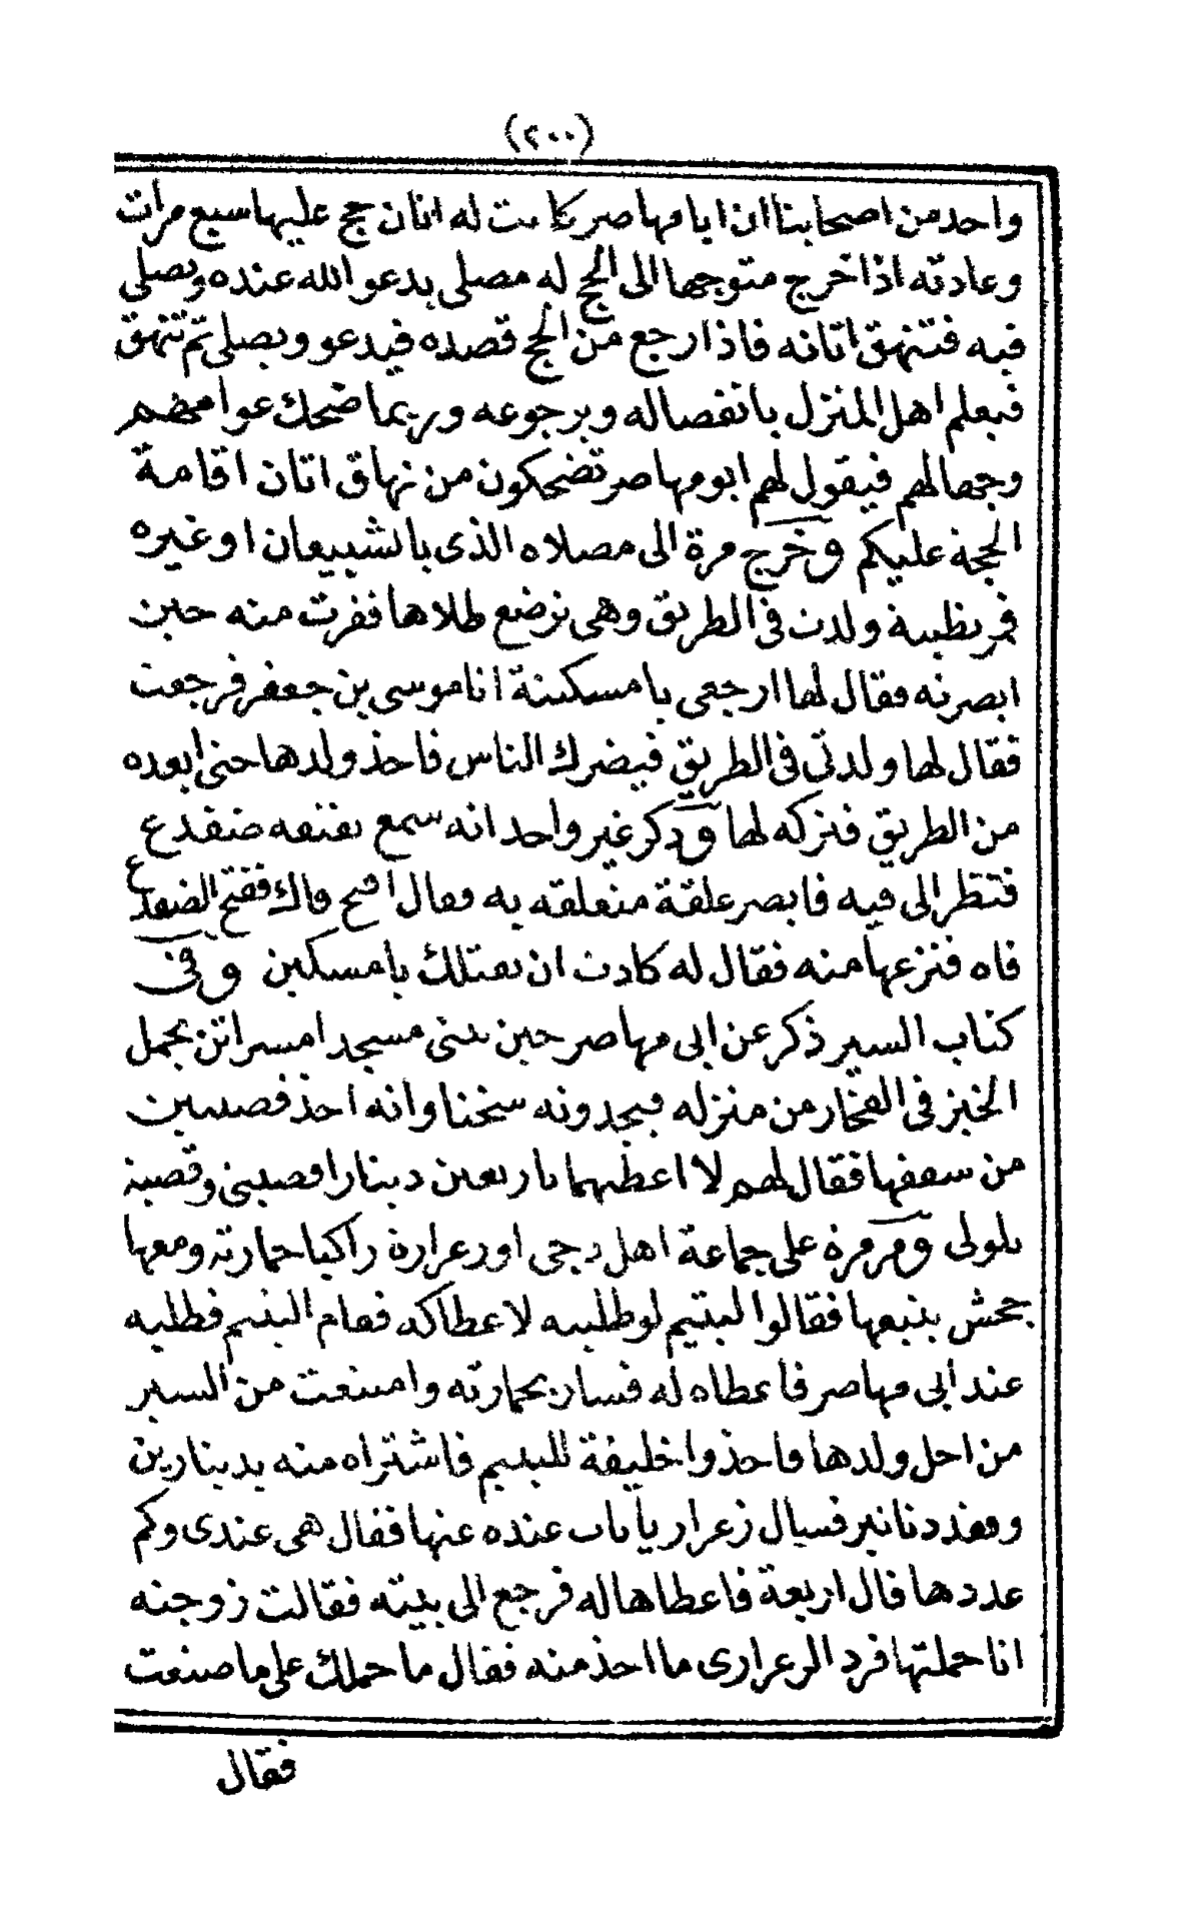 (٢٠٠)
واحد من اصحابنا ان ابا مهاصر كانت له اتان حج عليها سبع مرات
وعادته اذا خرج متوجها الى الحج له مصلى يدعو الله عنده ويصلى
فيه فتنهق اتانه فاذا رجع من الحج قصده فيدعو ويصلى ثم تنهق
فيعلم اهل المنزل بانفصاله وبرجوعه وربما ضحك عوامهم
وجهالهم فيقول لهم ابو مهاصر تضحكون من نهاق اتان اقامة
الحجة عليكم وخرج مرة الى مصلاه الذى بالشبيعان او غيره
فمر بظبية ولدت فى الطريق وهى ترضع طلاها ففرت منه حين
ابصرته فقال لها ارجعى يا مسكينة انا موسى بن جعفر فرجعت
فقال لها ولدتى فى الطريق فيضرك الناس فاخذ ولدها حتى ابعده
من الطريق فتركه لها وذكر غير واحد انه سمع نقنقه ضفدع
فنظر الى فيه فابصر علقة متعلقه به فقال افتح فاك ففتح الضفدع
فاه فنزعها منه فقال له كادت ان تقتلك يا مسكين وفى
كتاب السير ذكر عن ابى مهاصر حين بنى مسجد امسراتن يحمل
الخبز فى الفخار من منزله فيجدونه سخنا وانه اخذ قصبتين
من سعفها فقال لهم لا اعطيهما باربعين دينارا قصبتى وقصبة
بلولى ومر مرة على جماعة اهل دجى اوزعرارة راكبا حمارته ومعها
جحش يتبعها فقالوا ليتيم لو طلبته لاعطاكه فقام اليتيم فطلبه
عند ابى مهاصر فاعطاه له فسار بحمارته وامتنعت من السير
من اجل ولدها فاخذوا خليفة لليتيم فاشتراه منه بدينارين
وفقد دنانير فسال زعراريا بات عنده عنها فقال هى عندى وكم
عددها قال اربعة فاعطاها له فرجع الى بيته فقالت زوجته
انا حملتها فرد الزعرارى ما اخذ منه فقال ما حملك على ما صنعت
فقال